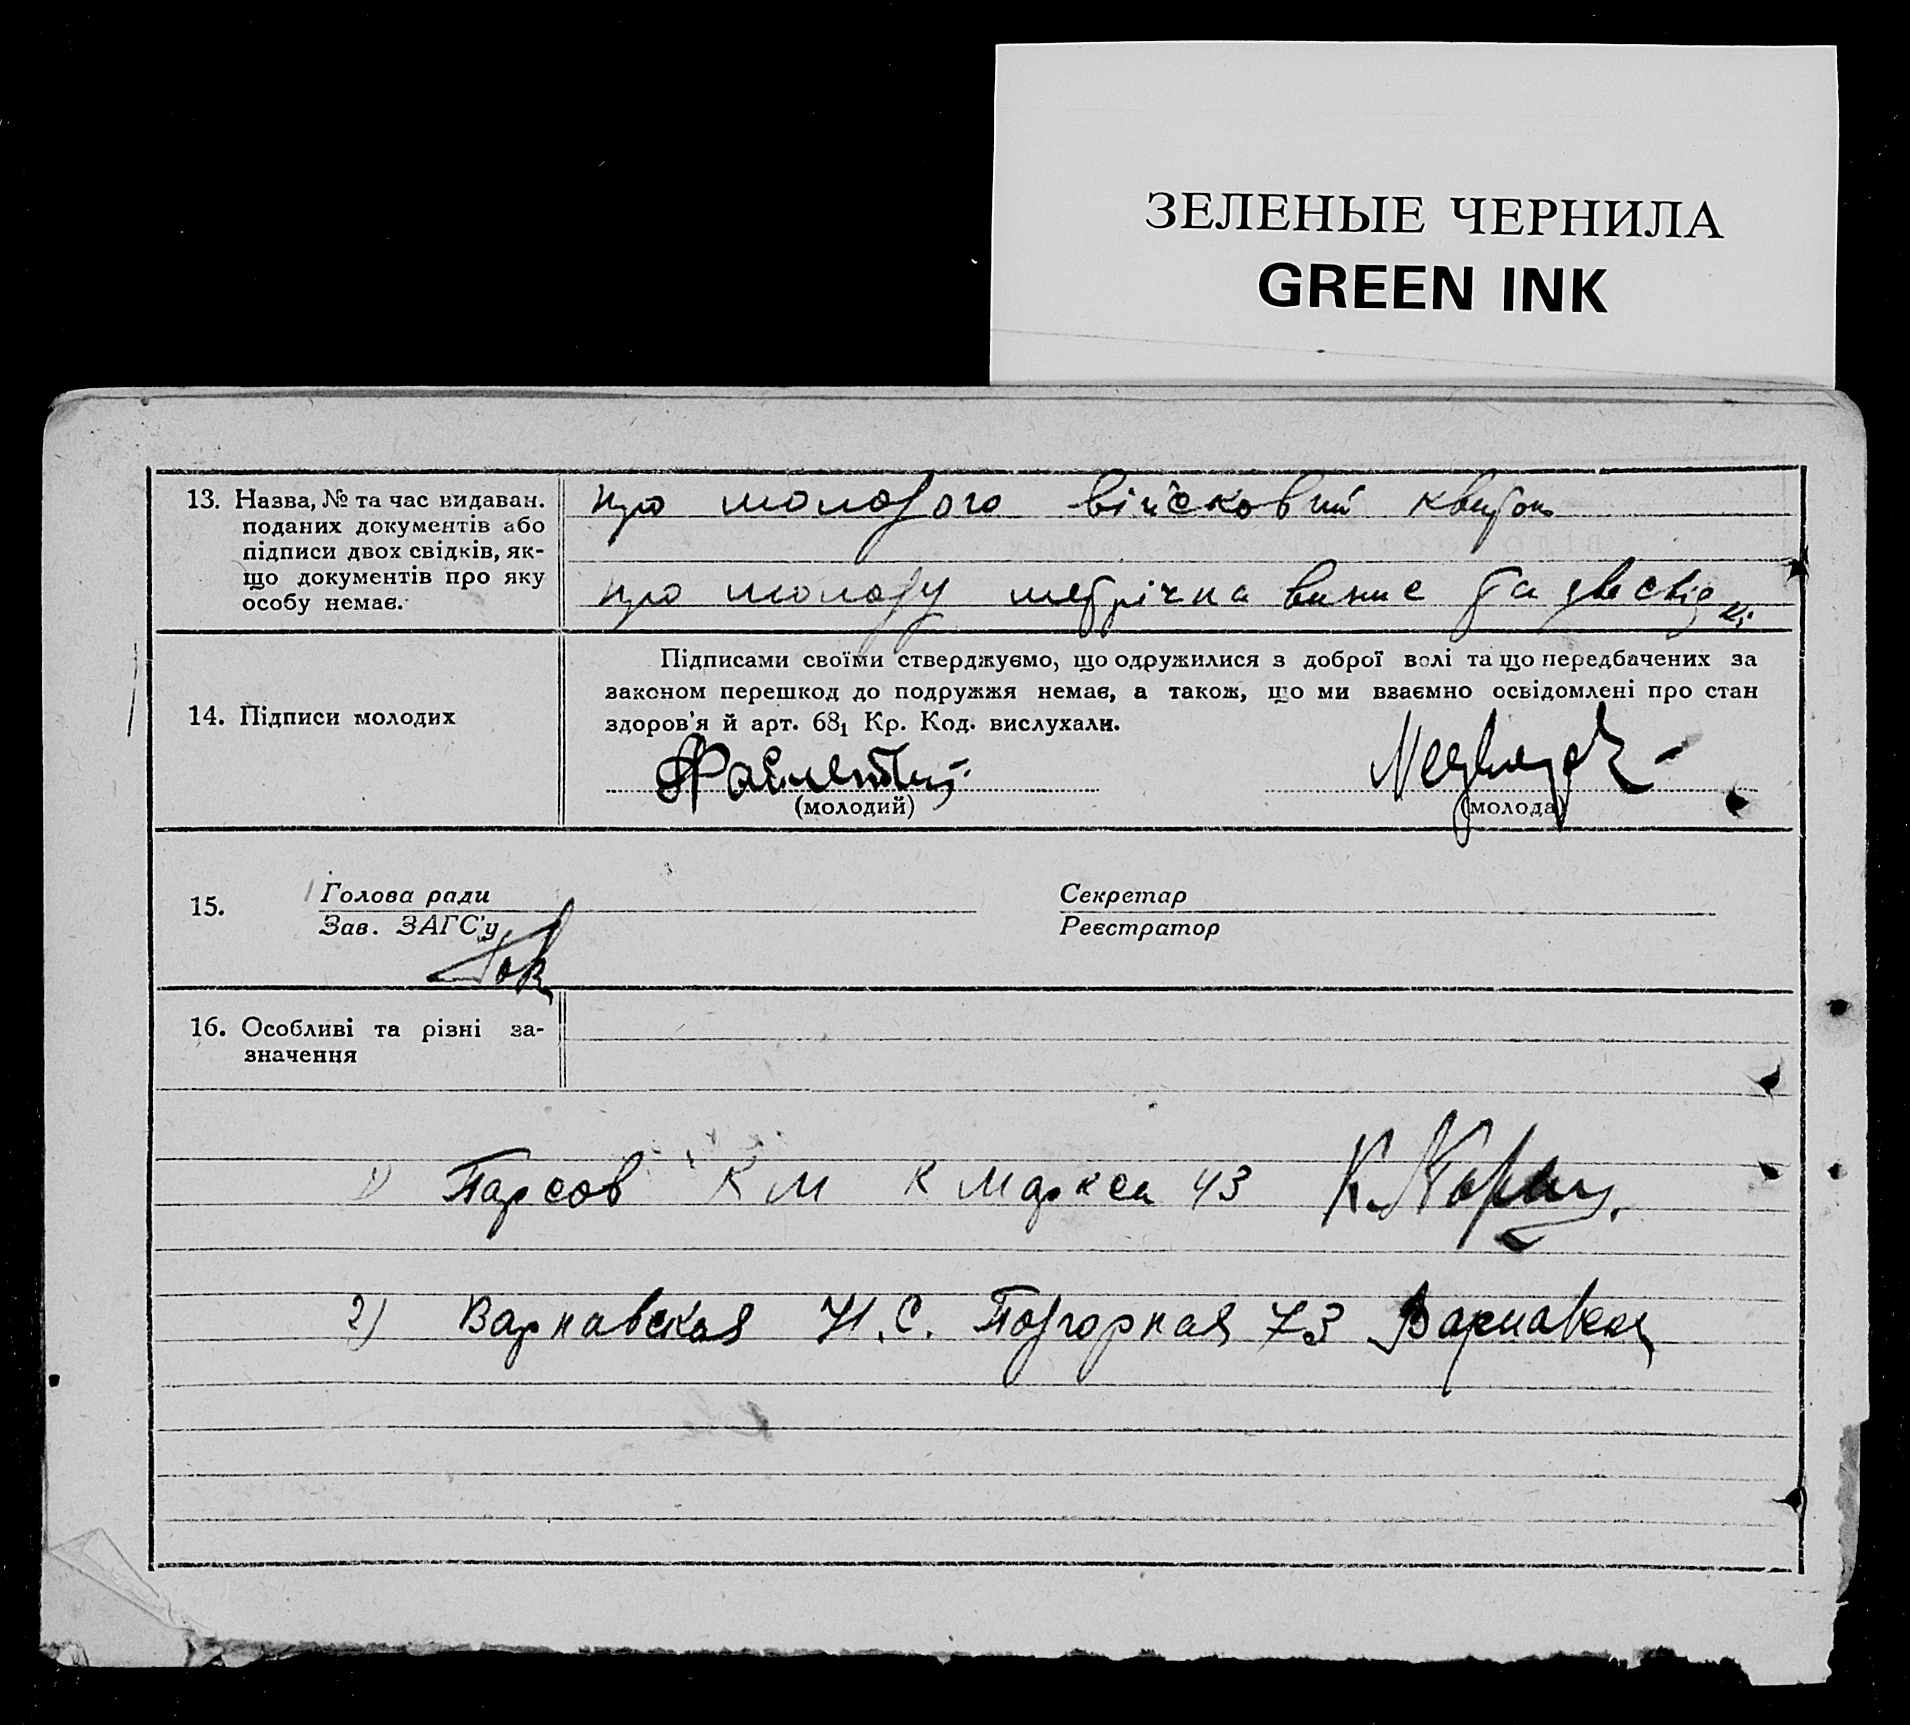 ЗЕЛЕНЫЕ ЧЕРНИЛА
GREEN INK
13. Назва, № та час видаван.
поданих документів або
підписи двох свідків, як-
що документів про яку
особу немає.
про молодого військовий квиток
про молоду метрічна випис та две свідки
14. Підписи молодих
Підписами своїми стверджуємо, що одружилися з доброї волі та що передбачених за
законом перешкод до подружжя немає, а також, що ми взаємно освідомлені про стан
здоров'я й арт. 68₁ Кр. Код. вислухали.
(молодий)
(молода)
15.
Голова ради
Зав. ЗАГС'у
Секретар
Реєстратор
16. Особливі та різні за-
значення
1) К М К Маркса 43
2) Варнавская Н. С. Погорная 73